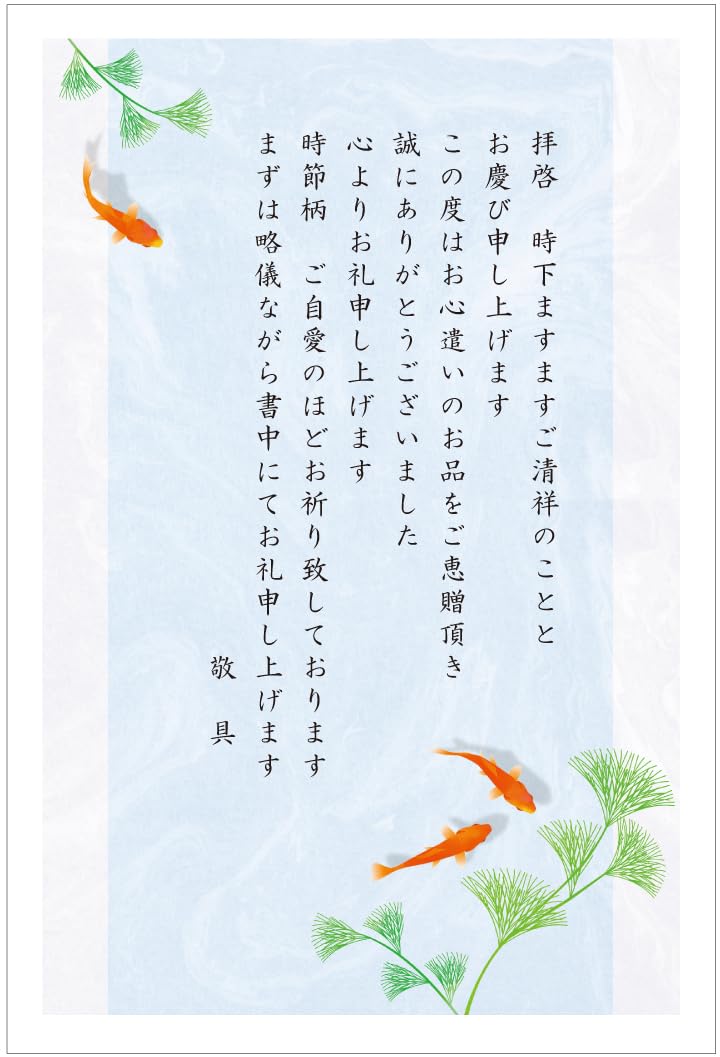 拝啓　時下ますますご清祥のことと
お慶び申し上げます
この度はお心遣いのお品をご恵贈頂き
誠にありがとうございました
心よりお礼申し上げます
時節柄　ご自愛のほどお祈り致しております
まずは略儀ながら書中にてお礼申し上げます
敬　具